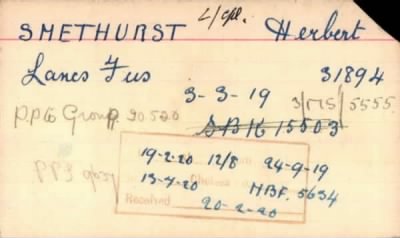 L/Cpl.
SMETHURST Herbert
Lancs Fus 31894
3-3-19 3/MS/5555.
PP6 Group. 20520
SB16 15503
19-2-20 12/8 24-9-19
13-7-20 HBF. 5634
Received 20-2-20